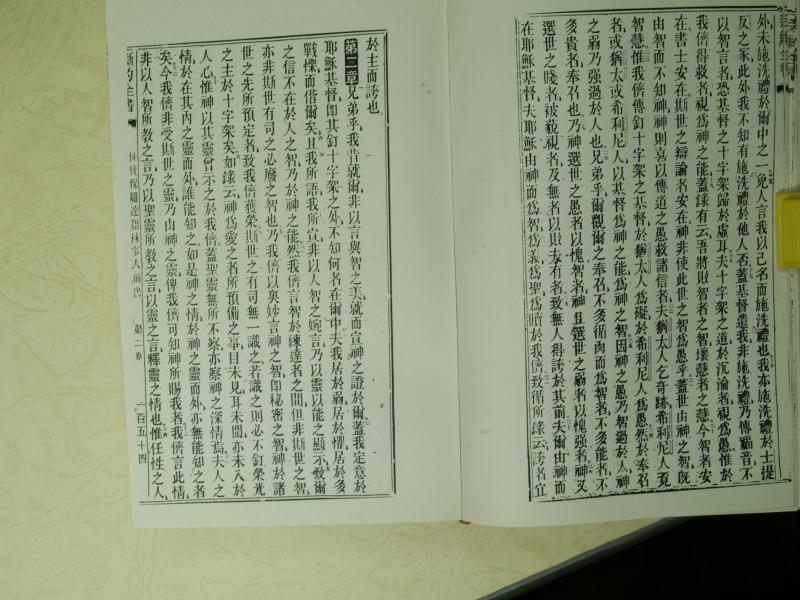 外未施洗禮於爾中之一免人言我以己名而施洗禮也我亦施洗禮於士提
反之家此外我不知有施洗禮於他人否蓋基督遣我非施洗禮乃傳福音不
以智言者恐基督之十字架歸於虛耳夫十字架之道於沉淪者視爲愚惟於
我儕得救者視爲神之能蓋錄有云吾將敗智者之智壞慧者之慧今智者安
在書士安在斯世之辯論者安在神非使此世之智爲愚乎蓋世由神之智旣
由智而不知神神則喜以傳道之愚救諸信者夫猶太人乞奇跡希利尼人覓
智慧惟我儕傳釘十字架之基督於猶太人爲礙於希利尼人爲愚然於奉召
者或猶太或希利尼人以基督爲神之能爲神之智因神之愚乃智過於人神
之弱乃强過於人也兄弟乎爾觀爾之奉召不多循肉而爲智者不多能者不
多貴者奉召也乃神選世之愚者以愧智者神且選世之弱者以愧强者神又
選世之賤者被藐視者及無者以敗夫有者致無人得誇於其前夫爾由神而
在耶穌基督夫耶穌由神而爲智爲義爲聖爲贖於我儕致循所錄云誇者宜
於主而誇也
第二章兄弟乎我昔就爾非以言與智之美就而宣神之證於爾蓋我定意於
耶穌基督卽其釘十字架之外不知何名在爾中夫我居於弱居於懼居於多
戰慄而偕爾矣且我所語我所宣非以人智之婉言乃以靈以能之顯示致爾
之信不在於人之智乃於神之能然我儕言智於練達者之間但非斯世之智
亦非斯世有司之必廢之智也乃我儕以奧妙言神之智卽秘密之智神於諸
世之先所預定者致我儕獲榮斯世之有司無一識之若識之則必不釘榮光
之主於十字架矣如錄云神爲愛之者所預備之事目未見耳未聞亦未入於
人心惟神以其靈曾示之於我儕蓋聖靈無所不察亦察神之深情焉夫人之
情於在其內之靈而外誰能知之如是神之情於神之靈而外亦無能知之者
矣今我儕非受斯世之靈乃由神之靈俾我儕可知神所賜我者我儕言此情
非以人智所教之言乃以聖靈所教之言以靈之言釋靈之情也惟任性之人
新約全書 使徒保羅達哥林多人前書 第二章 一百五十四